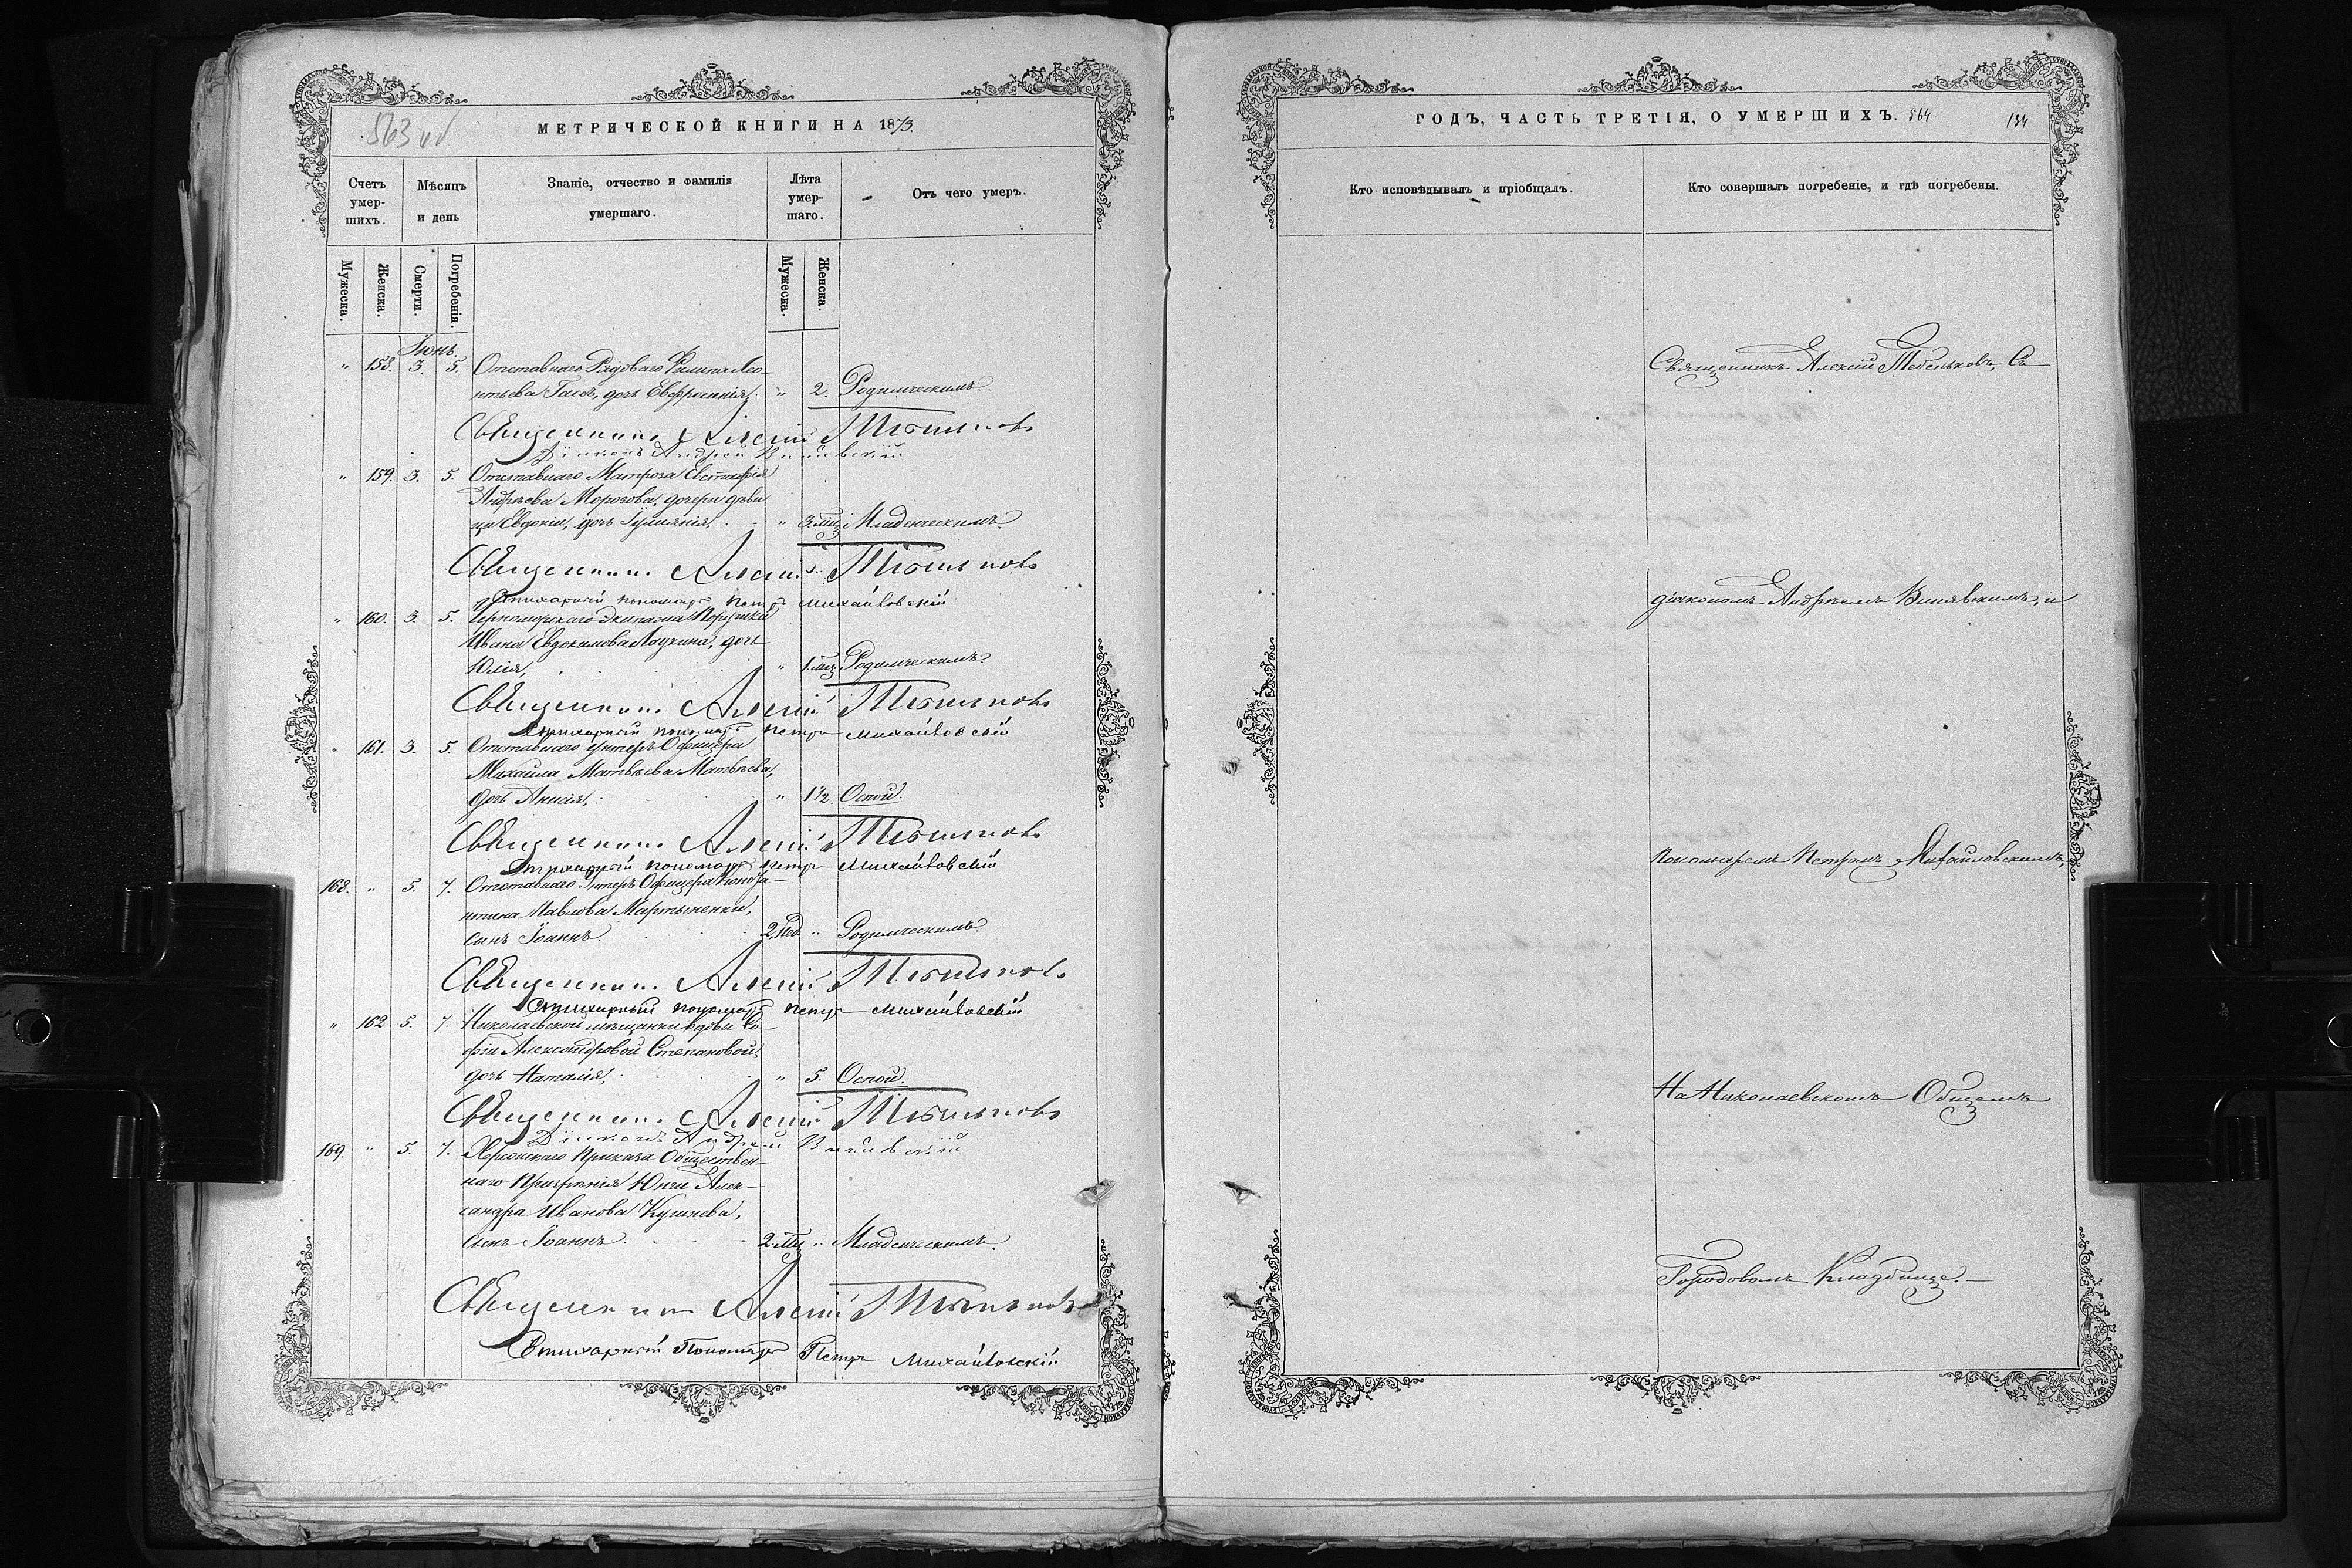 563 об.
МЕТРИЧЕСКОЙ КНИГИ НА 1873.
Счетъ умер-шихъ.
Мѣсяцъ и день
Званіе, отчество и фамилія умершаго.
Лѣта умер-шаго.
Отъ чего умеръ.
Мужеска.
Женска.
Смерти.
Погребенія.
Мужеска.
Женска.
Іюнь.
" 158. 3. 5. Отставнаго Рядоваго Филипа Лео-
нтьева дочь Евфросинія, " 2. Родимческимъ.
Священникъ Алексій
Діаконъ Андрей
" 159. 3. 5. Отставнаго Матроза Евстафія
Андреева Морозова, дочери дѣви-
цы Евдокіи, дочь Іуліанія, " 3. мц. Младенческимъ.
Священникъ Алексій
Стихарный пономарь Петръ Михайловскій
" 160. 3. 5. Черноморскаго Экипажа
Ивана Евдокимова дочь
Юлія, " 1. мц. Родимческимъ.
Священникъ Алексій
Стихарный пономарь Петръ Михайловскій
" 161. 3. 5. Отставнаго Унтеръ Офицера
Михаила Матвѣева Матвѣева,
дочь Анисія, " 1½. Оспой.
Священникъ Алексій
Стихарный пономарь Петръ Михайловскій
168. " 5. 7. Отставнаго Унтеръ Офицера Конста-
нтина Павлова Мартыненки,
сынъ Іоаннъ. 2. нед. " Родимческимъ.
Священникъ Алексій
Стихарный пономарь Петръ Михайловскій
" 162 5. 7. Николаевской мѣщанки вдовы Со-
фіи Александровой Степановой,
дочь Наталія, " 5. Оспой.
Священникъ Алексій
Діаконъ Андрей
169. " 5. 7. Херсонскаго Приказа Обществен-
наго Призрѣнія Алек-
сандра Иванова
сынъ Іоаннъ. 2. мц. " Младенческимъ.
Священникъ Алексій
Стихарный Пономарь Петръ Михайловскій
ГОДЪ, ЧАСТЬ ТРЕТІЯ, О УМЕРШИХЪ. 564
134
Кто исповѣдывалъ и пріобщалъ.
Кто совершалъ погребеніе, и гдѣ погребены.
Священникъ Алексій Съ
діакономъ Андреемъ и
пономаремъ Петромъ Михайловскимъ,
На Николаевскомъ Общемъ
Городовомъ Кладбище.